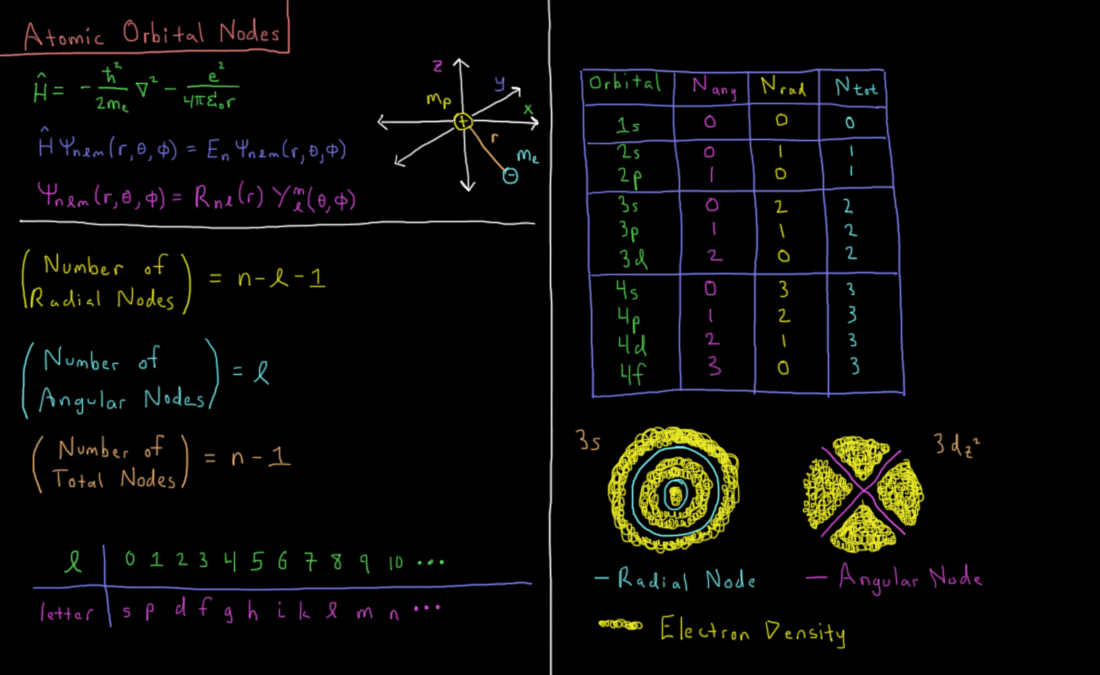 Atomic Orbital Nodes
Ĥ = -ħ²/2mₑ ∇² - e²/4πε₀r
Ĥ Ψnlm(r,θ,ϕ) = En Ψnlm(r,θ,ϕ)
Ψnlm(r,θ,ϕ) = Rnl(r) Yₗᵐ(θ,ϕ)
z
y
x
mp
+
r
me
-
(Number of
Radial Nodes) = n-ℓ-1
(Number of
Angular Nodes) = ℓ
(Number of
Total Nodes) = n-1
ℓ 0 1 2 3 4 5 6 7 8 9 10 ...
letter s p d f g h i k l m n ...
Orbital Nang Nrad Ntot
1s 0 0 0
2s 0 1 1
2p 1 0 1
3s 0 2 2
3p 1 1 2
3d 2 0 2
4s 0 3 3
4p 1 2 3
4d 2 1 3
4f 3 0 3
3s
3dz²
- Radial Node
- Angular Node
Electron Density